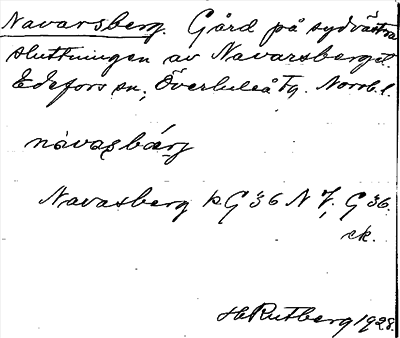 Navarsberg. Gård på sydvästra
sluttningen av Navarsberget.
Edefors sn; Överluleå Tg. Norrb. l.
navasbärg
Navasberg h. G 36 N V, G 36.
ek.
H. Rutberg 1928.